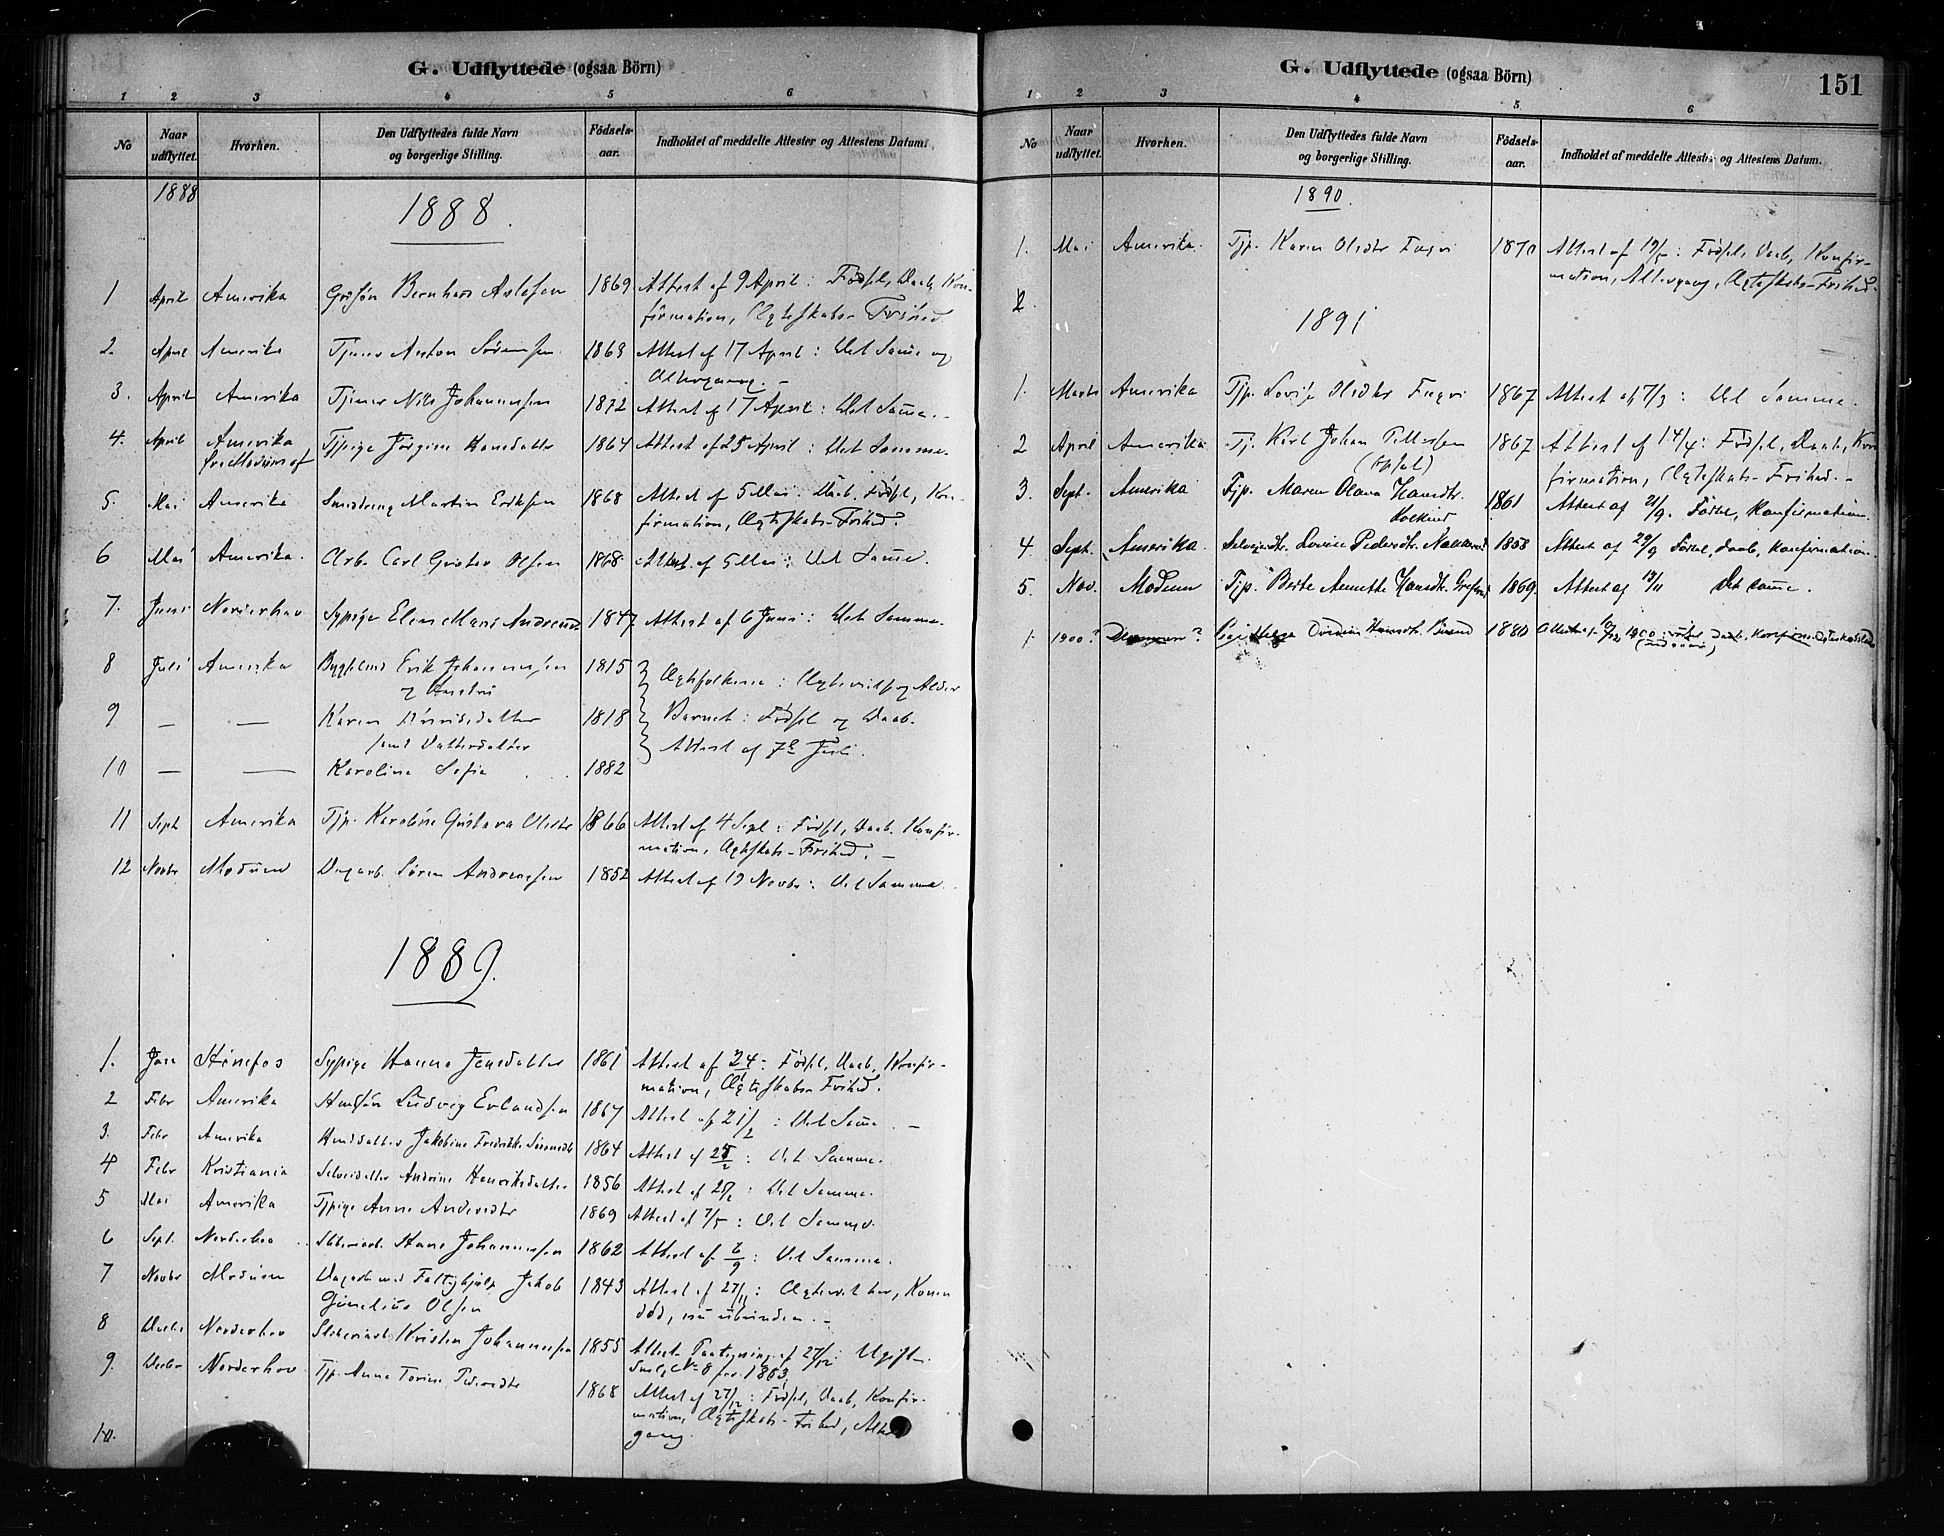 G. Udflyttede (ogsaa Börn)
1 2 3 4 5 6
No
Naar udflyttet.
Hvorhen.
Den Udflyttedes fulde Navn og borgerlige Stilling.
Fødsels-aar.
Indholdet af meddelte Attester og Attestens Datum.
1888
1888.
1 April Amerika Bernhard Aslesen 1869 Attest af 9 April: Fødsel, Daab, Kon-
firmation, Ægteskabs Frihed
2. April Amerika Tjener Anton Sørensen 1869 Attest af 17 April: Det Samme og
Altergang. -
3. April Amerika Tjener Nils Johannesen 1872 Attest af 17 April: Det Samme. -
4. April Amerika Tjpige Jørgine Hansdatter 1864 Attest af 25 April: Det Samme.
5. Mai Amerika Martin Eriksen 1868 Attest af 5 Mai: Daab, Fødsel, Kon-
firmation, Ægteskabs-Frihed.
6 Mai Amerika. Arb. Carl Gustav Olsen 1868 Attest af 5 Mai: Det Samme.
7. Juni Norderhov Sypige Elen Marie Andreasd. 1847 Attest af 6 Juni: Det Samme.
8 Juli Amerika Erik Johannesen 1815 Ægtefolkene: Ægteviet og Alder
og Hustru
9 — — Karen 1818 Barnet: Fødsel og Daab.
samt Datterdatter Attest af 7de Juli.
10 — — Karoline Sofie 1882
11 Sept Amerika Tjp. Karoline Gustava Olsdtr 1866 Attest af 4 Sept: Fødsel, Daab, Konfir-
mation, Ægteskabs-Frihed. -
12 Novbr Modum Søren Andreassen 1852 Attest af 19 Novbr: Det Samme.
1889.
1. Jan Hønefos Sypige Hanna Jensdatter 1861 Attest af 24/1: Fødsel, Daab, Konfir-
mation, Ægteskabs Frihed.
2 Febr Amerika Ludvig Erlandsen 1867 Attest af 21/2: Det Samme. -
3. Febr Amerika Jakobine Fredrikke Sørensdtr 1864 Attest af 25/2: Det Samme.
4 Febr Kristiania Andrine Henriksdatter 1856 Attest af 25/2: Det Samme.
5 Mai Amerika Tjpige Anne Andersdtr 1869 Attest af 7/5: Det Samme.
6 Sept. Norderhov Hans Johannessen 1862 Attest af 6/9: Det Samme.
7 Novbr Modum Jakob 1843 Attest af 27/11: Konen
Olsen død,
8 Decbr Norderhov Kristen Johannessen 1855 Attest Paategning af 27/12: Ugift.
No 8 for 1883
9. Decbr Norderhov Tjp. Anne Torine Pedersdtr 1868 Attest af 27/12: Fødsel, Daab, Konfir-
mation, Ægteskabs-Frihed, Alter-
gang.
10.
G. Udflyttede (ogsaa Börn)
151
1 2 3 4 5 6
No
Naar udflyttet.
Hvorhen.
Den Udflyttedes fulde Navn og borgerlige Stilling.
Fødsels-aar.
Indholdet af meddelte Attester og Attestens Datum.
1890.
1. Mai Amerika. Tjp. Karen Olsdtr 1870 Attest af 19/5: Fødsel, Daab, Konfir-
mation, Altergang, Ægteskabs-Frihed.
2.
1891
1. Marts Amerika Tjp. Lovise Olsdtr 1867 Attest af 7/3: Det Samme.
2 April Amerika Tj. Karl Johan Pettersen 1867 Attest af 14/4: Fødsel, Daab, Kon
firmation, Ægteskabs-Frihed. -
3. Sept. Amerika Tjp. Maren Olava Hansdtr. 1861 Attest af 21/9. Fødsel, Konfirmation.
4. Sept. Amerika. Lovise Pedersdtr. 1858 Attest af 29/9 Fødsel, Daab, Konfirmation
5. Nov. Modum Tjp. Berte Annette Hansdtr. 1869. Attest af 13/11 Det samme.
1. 1900? 1880 1900